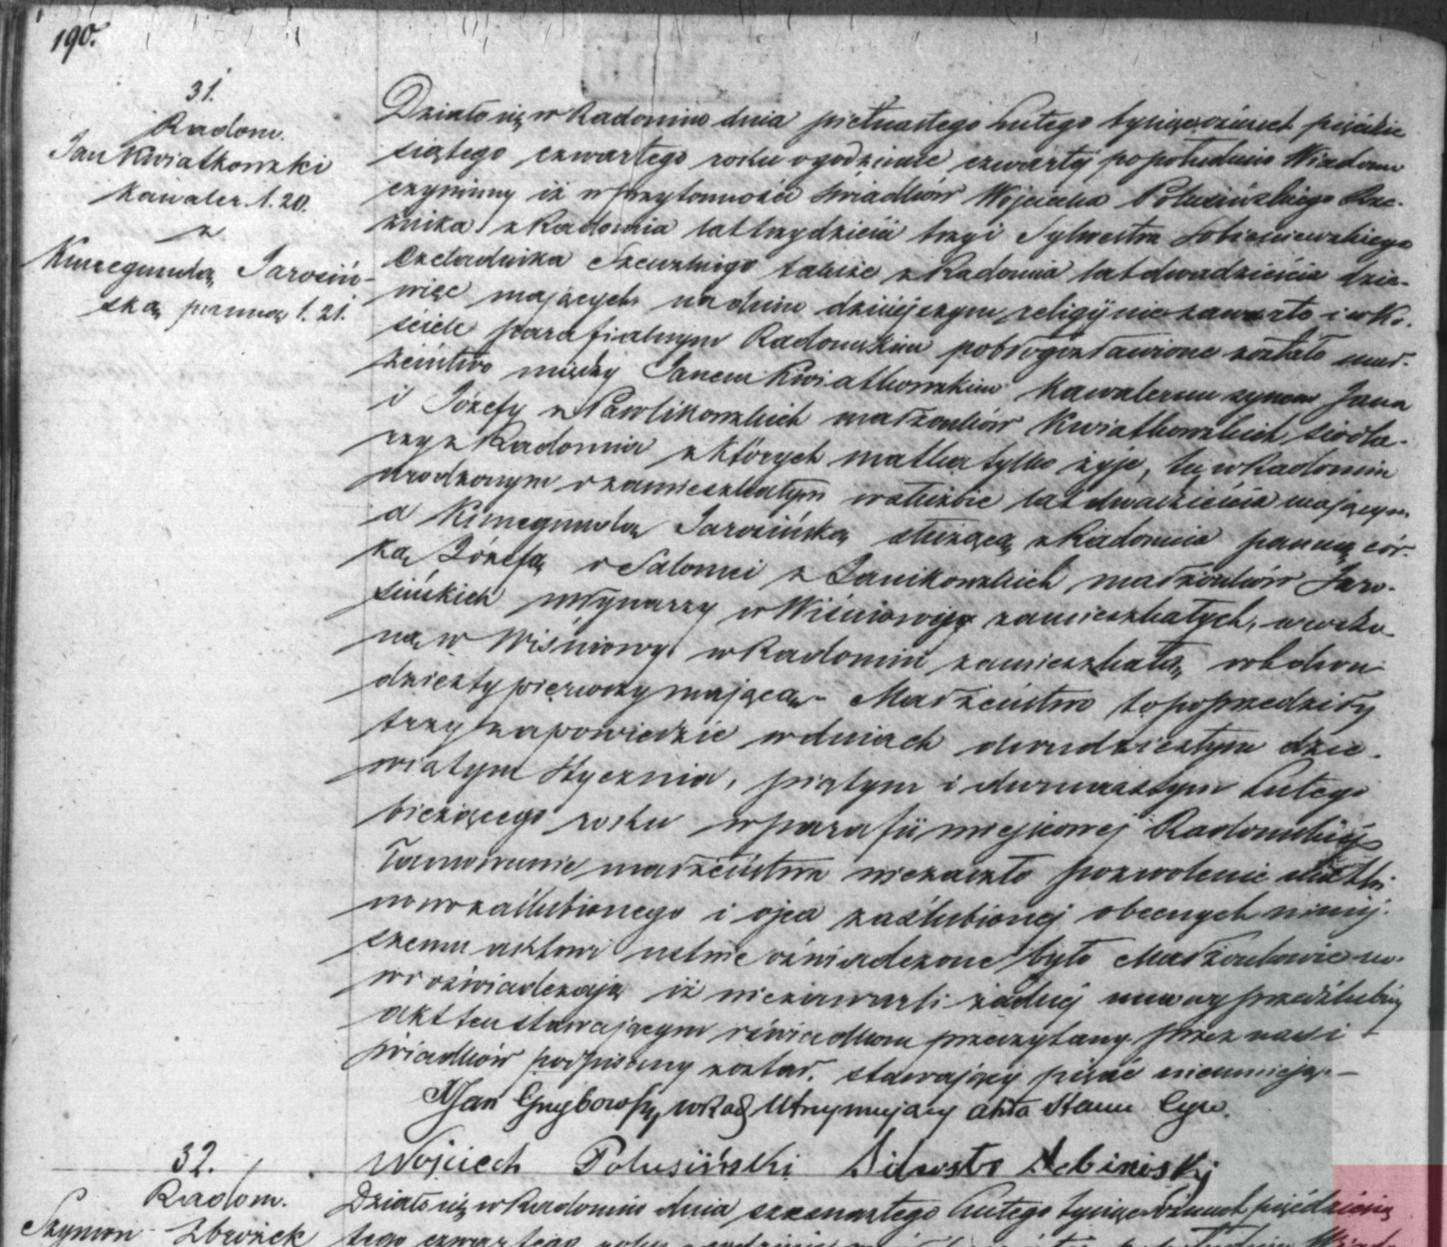 190.
31.
Radom.
Jan Kwiatkowski
Kawaler l. 20.
z
Kunegundą Jarosiń-
ską panną l. 21.
Działo się w Radomiu dnia piętnastego Lutego tysiąc ośmset pięćdzie
siątego czwartego roku o godzinie czwartej popołudniu Wiadomo
czyniemy iż w przytomności świadków Wojciecha Polusińskiego Rze-
źnika z Radomia lat trzydzieści trzy i Sylwestra
Czeladnika Szewckiego także z Radomia lat dwadzieścia dzie-
więć mających na dniu dzisiejszym religijnie zawarte i w Ko-
ściele parafialnym Radomskim pobłogosławione zostało mał-
żeństwo między Janem Kwiatkowskim Kawalerem synem Jana
i Józefy z Pawlikowskich małżonków Kwiatkowskich siodla-
rzy z Radomia z których matka tylko żyje, tu w Radomiu
urodzonym i zamieszkałym w służbie lat dwadzieścia mającym,
a Kunegundą Jarosińską służącą z Radomia panną cór-
ką Józefa i Salomei z Janikowskich małżonków Jaro-
sińskich młynarzy w Wiśniowej zamieszkałych, urodzo-
ną w Wiśniowy w Radomiu zamieszkałą rok dwu-
dziesty pierwszy mającą - Małżeństwo to poprzedziły
trzy zapowiedzie w dniach dwudziestym dzie-
wiątym Stycznia, piątym i dwunastym Lutego
bieżącego roku w parafii miejscowej Radomskiej
Tamowanie małżeństwa nie zaszło pozwolenie matki
nowozaślubionego i ojca zaślubionej obecnych niniej-
szemu aktowi ustnie oświadczone było Małżonkowie no-
wi oświadczają iż nie zawarli żadnej umowy przedślubnej
akt ten stawającym i świadkom przeczytany, przez nas i
świadków podpisany został. stawający pisać nieumieją. -
XJan Grzybowski, w Rad Utrzymujący akta Stanu Cyw.
Wojciech Polusiński
32.
Radom.
Szymon
Działo się w Radomiu dnia szesnastego Lutego tysiąc ośmset pięćdziesią
tego czwartego roku o godzinie